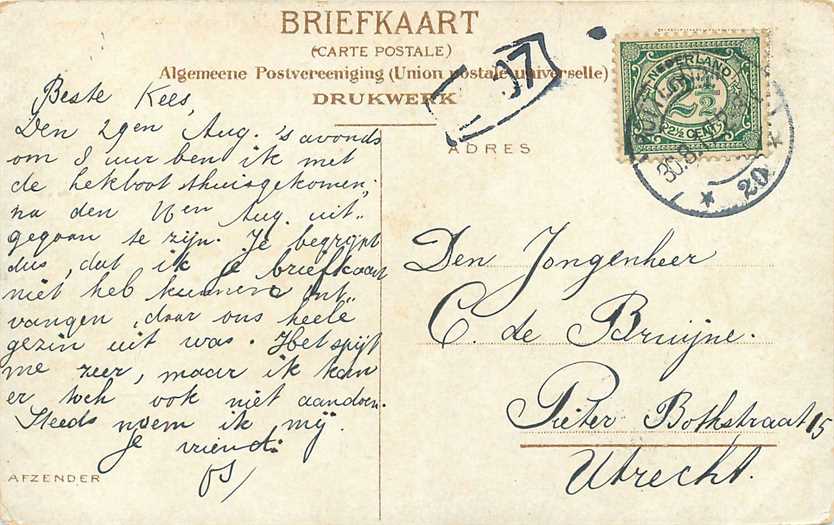 BRIEFKAART
(CARTE POSTALE)
Algemeene Postvereeniging (Union postale universelle)
DRUKWERK
ADRES
NEDERLAND
2½
2½ CENT
07
30.8
20
Beste Kees,
Den 29en Aug. 's avonds
om 8 uur ben ik met
de hekboot thuisgekomen,
na den 11en Aug. uit-
gegaan te zijn. Je begrijpt
dus, dat ik je briefkaart
niet heb kunnen ont-
vangen, daar ons heele
gezin uit was. Het spijt
me zeer, maar ik kan
er toch ook niet aandoen.
Steeds noem ik mij
je vriend:
AFZENDER
Den Jongenheer
C. de Bruijne.
Pieter Bothstraat 15
Utrecht.